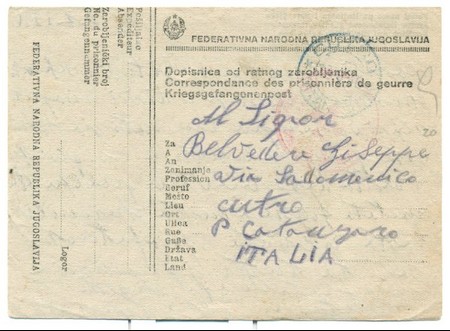 FEDERATIVNA NARODNA REPUBLIKA JUGOSLAVIJA
Dopisnica od ratnog zarobljenika
Correspondance des prisonniers de geurre
Kriegsgefangenenpost
Al Signor
Za
A
An
Belvedere Giseppe
20
Zanimanje
Profession
Beruf
Via Sadomenico
Mesto
Lieu
Ort
Cutro
Ulica
Rue
Gaße
P Catanzaro
Država
Etat
Land
ITALIA
Pošiljalac
Expediteur
Absender
Zarobljenički broj
No. du prisonnier
Gefangenennummer
Logor
FEDERATIVNA NARODNA REPUBLIKA JUGOSLAVIJA